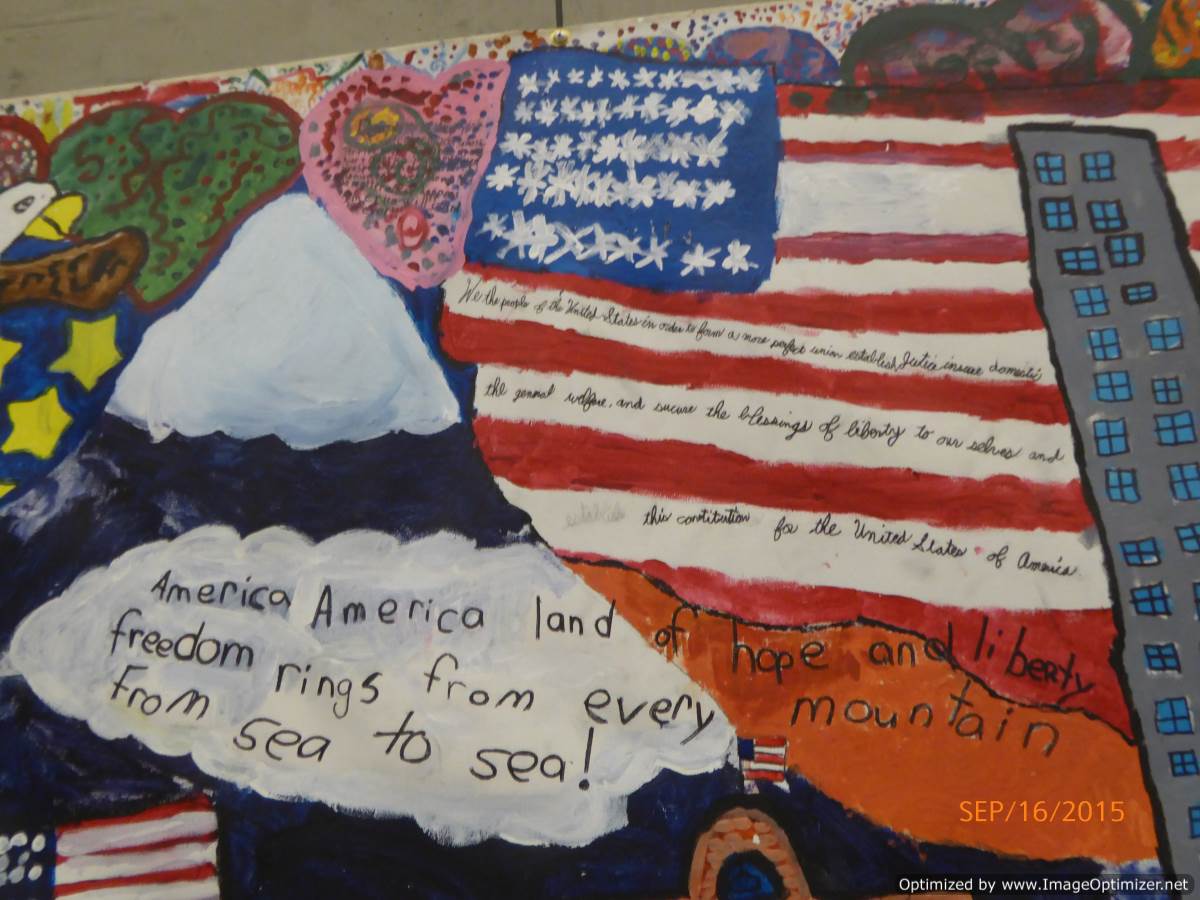 We the people of the United States in order to form a more perfect union establish Justice insure domestic
the general welfare, and secure the blessings of liberty to our selves and
establish this constitution for the United States of America.
America America land of hope and liberty
freedom rings from every mountain
From sea to sea!
SEP/16/2015
Optimized by www.ImageOptimizer.net